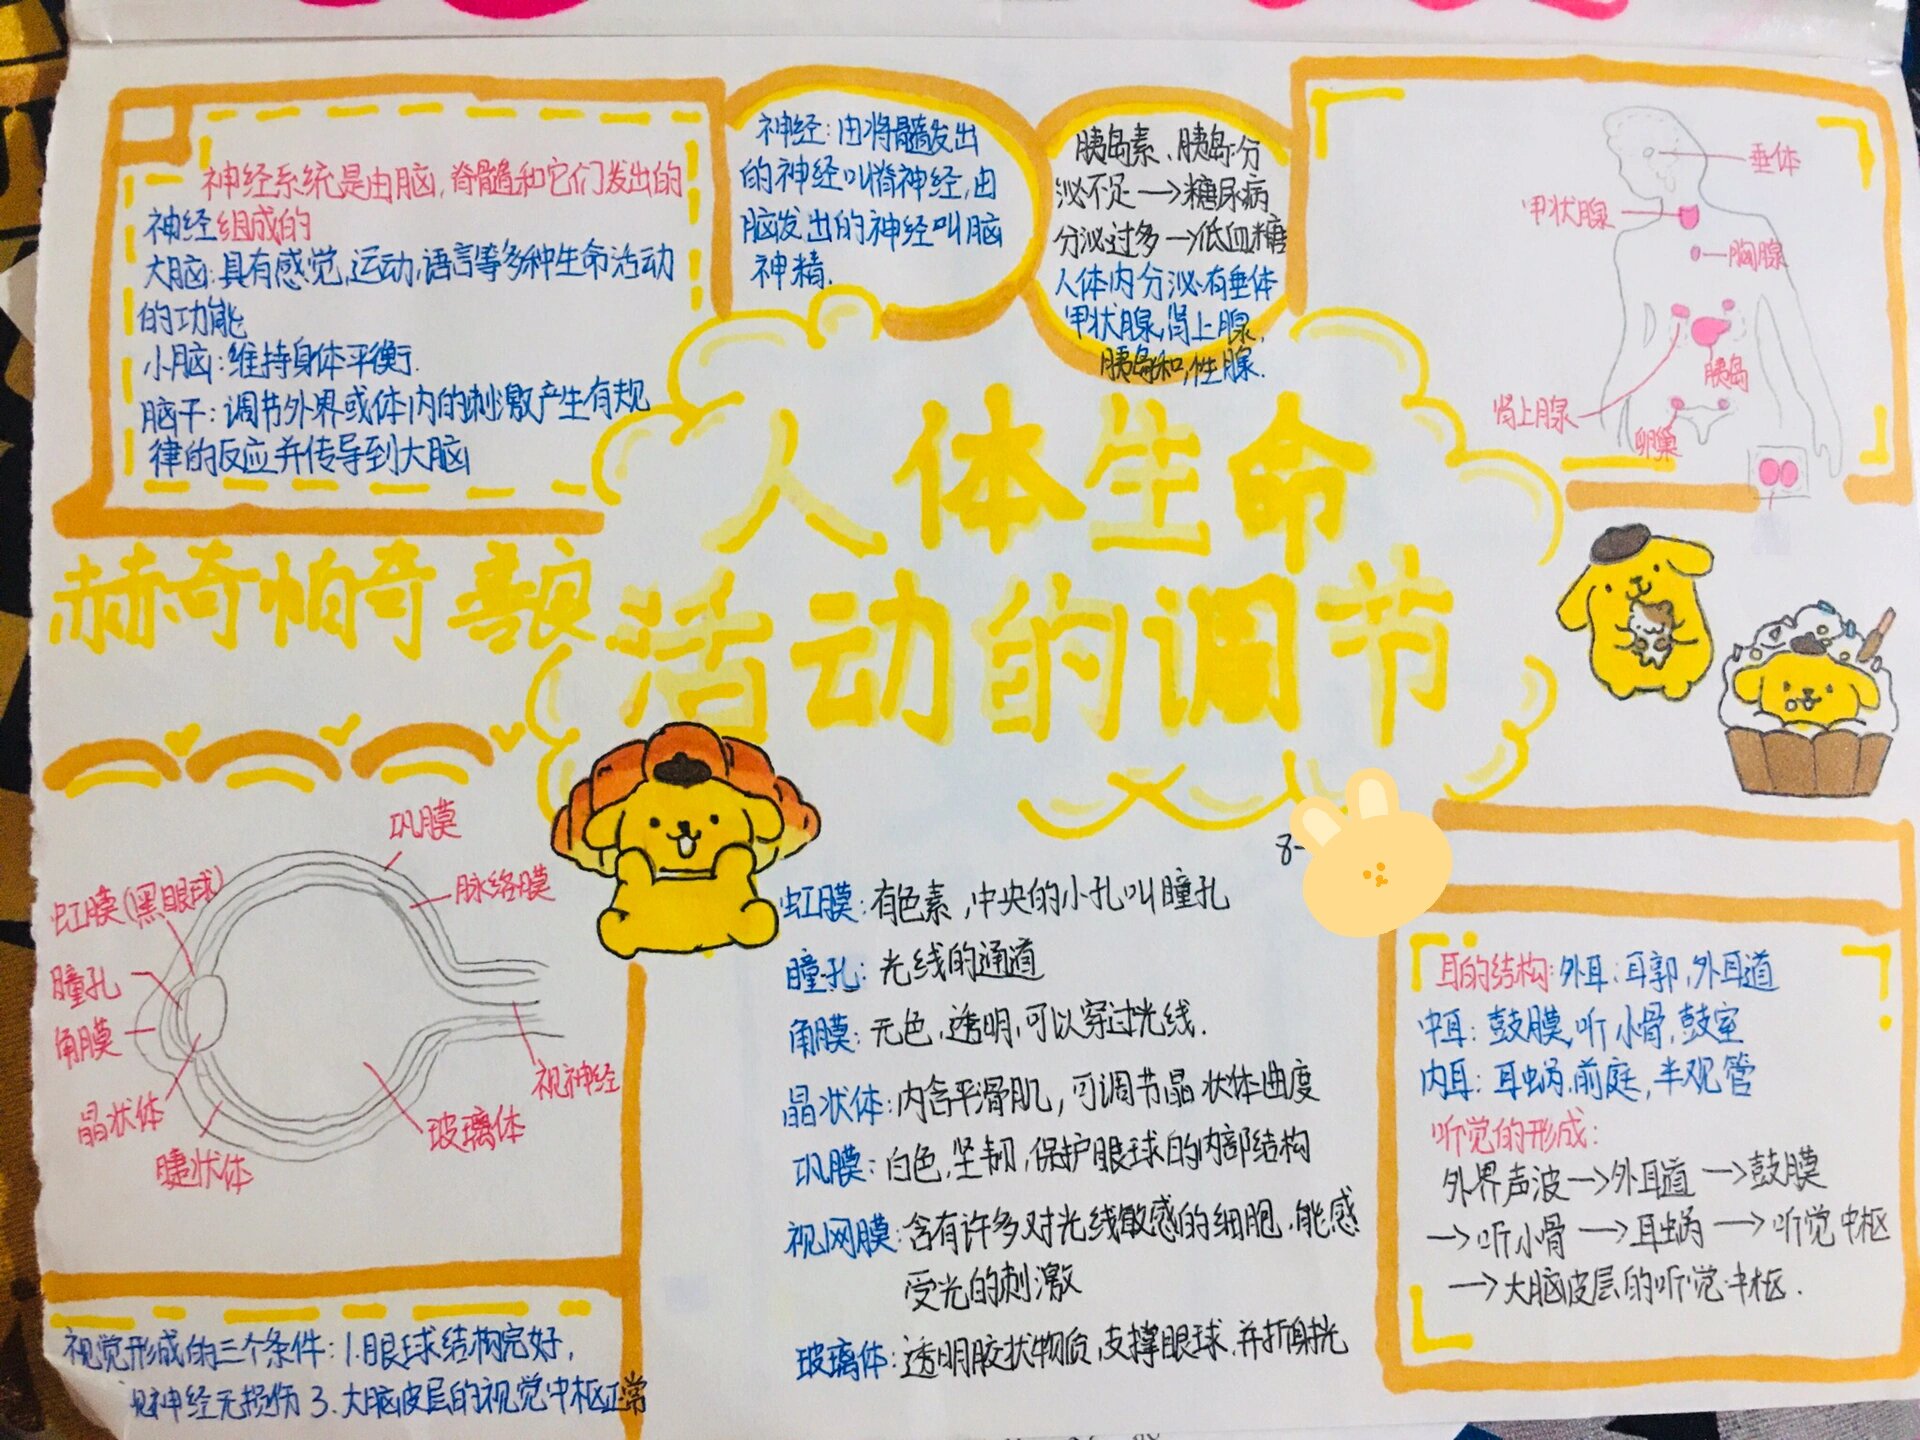 神经系统是由脑,脊髓和它们发出的
神经组成的
大脑:具有感觉,运动,语言等多种生命活动
的功能
小脑:维持身体平衡.
脑干:调节外界或体内的刺激产生有规
律的反应并传导到大脑
神经:由脊髓发出
的神经叫脊神经,由
脑发出的神经叫脑
神精.
胰岛素、胰岛:分
泌不足→糖尿病
分泌过多→低血糖
人体内分泌:有垂体
甲状腺,肾上腺,
胰岛和,性腺.
垂体
甲状腺
胸腺
胰岛
肾上腺
卵巢
人体生命
活动的调节
赫奇帕奇
8-
巩膜
脉络膜
虹膜(黑眼球)
瞳孔
角膜
晶状体
睫状体
玻璃体
视神经
虹膜:有色素,中央的小孔叫瞳孔
瞳孔:光线的通道
角膜:无色,透明,可以穿过光线.
晶状体:内含平滑肌,可调节晶状体曲度
巩膜:白色,坚韧,保护眼球的内部结构
视网膜:含有许多对光线敏感的细胞,能感
受光的刺激
玻璃体:透明胶状物质,支撑眼球,并折射光
耳的结构:外耳:耳郭,外耳道
中耳:鼓膜,听小骨,鼓室
内耳:耳蜗,前庭,半规管
听觉的形成:
外界声波→外耳道→鼓膜
→听小骨→耳蜗→听觉中枢
→大脑皮层的听觉中枢.
视觉形成的三个条件:1.眼球结构完好,
神经无损伤 3.大脑皮层的视觉中枢正常